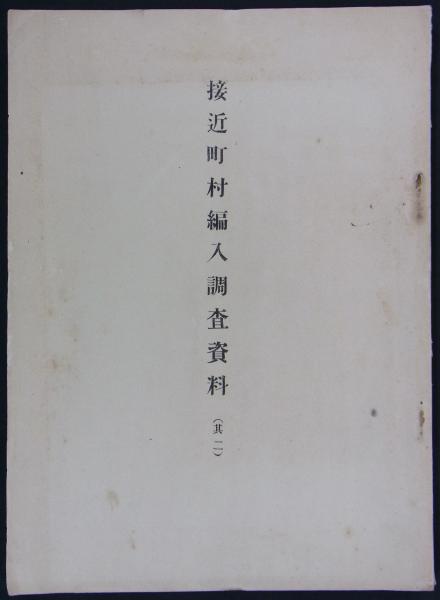 接近町村編入調査資料（其二）